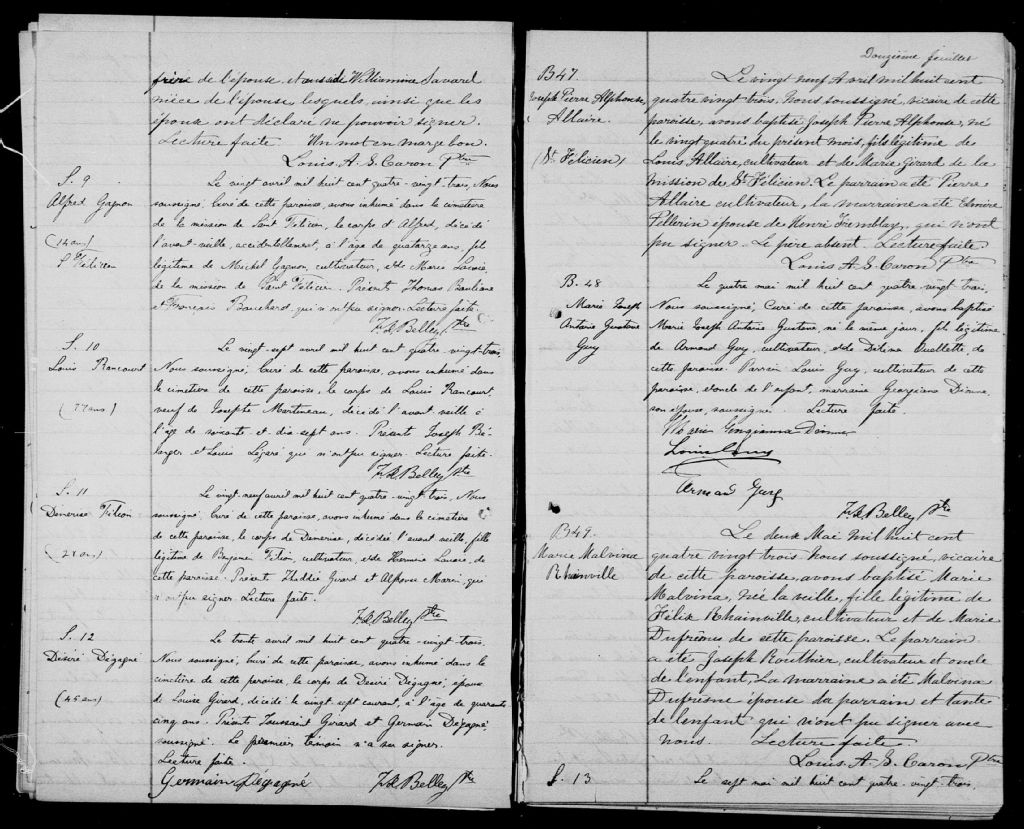 frère de l'épouse, et aussi de Williamine Savard
nièce de l'épouse, lesquels, ainsi que les
époux ont déclaré ne pouvoir signer.
Lecture faite. Un mot en marge bon.
Louis A. S. Caron Ptre
S. 9
Alfred Gagnon
(14 ans)
St Félicien
Le vingt avril mil huit cent quatre-vingt-trois, Nous
soussigné, Curé de cette paroisse, avons inhumé dans le cimetière
de la mission de Saint Félicien, le corps d'Alfred, décédé
l'avant-veille, accidentellement, à l'âge de quatorze ans, fils
légitime de Michel Gagnon, cultivateur, et de Marie
de la mission de Saint Félicien. Présents Thomas
et François Bouchard, qui n'ont pu signer. Lecture faite.
Belley Ptre
S. 10
Louis Rancourt
(77 ans)
Le vingt-sept avril mil huit cent quatre-vingt-trois,
Nous soussigné, Curé de cette paroisse, avons inhumé dans
le cimetière de cette paroisse, le corps de Louis Rancourt,
veuf de Josephte Martineau, décédé l'avant veille à
l'âge de soixante et dix sept ans. Présents Joseph Bé-
langer et Louis Légaré qui n'ont pu signer. Lecture faite.
Belley Ptre
S. 11
Démerise Filion
Le vingt-neuf avril mil huit cent quatre-vingt trois, Nous
soussigné, Curé de cette paroisse, avons inhumé dans le cimetière
de cette paroisse, le corps de Démerise, décédée l'avant veille, fille
légitime de Filion, cultivateur, et de
cette paroisse. Présents Girard et Alphonse Marin, qui
n'ont pu signer. Lecture faite.
Belley Ptre
S. 12
Désiré Dégagné
(45 ans)
Le trente avril mil huit cent quatre-vingt-trois.
Nous soussigné, Curé de cette paroisse, avons inhumé dans le
cimetière de cette paroisse, le corps de Désiré Dégagné, époux
de Louise Girard, décédé le vingt sept courant, à l'âge de quarante
cinq ans. Présents Toussaint Girard et Germain Dégagné
soussigné. Le premier témoin n'a su signer.
Lecture faite.
Germain Dégagné Belley Ptre
Douzième feuillet
B 47.
Joseph Pierre Alphonse,
Allaire.
(St Félicien)
Le vingt neuf Avril mil huit cent
quatre vingt trois, nous soussigné, vicaire de cette
paroisse, avons baptisé Joseph Pierre Alphonse, né
le vingt quatre du présent mois, fils légitime de
Louis Allaire, cultivateur et de Marie Girard de la
mission de St Félicien. Le parrain a été Pierre
Allaire cultivateur, la marraine a été
Pellerin épouse de Henri Tremblay, qui n'ont
pu signer. Le père absent. Lecture faite
Louis A. S. Caron Ptre
B. 48
Marie Joseph
Antoine Gustave
Guy
Le quatre mai mil huit cent quatre-vingt trois.
Nous soussigné, Curé de cette paroisse, avons baptisé
Marie Joseph Antoine Gustave, né le même jour, fils légitime
de Armand Guy, cultivateur, et de Ouellette, de
cette paroisse. Parrain Louis Guy, cultivateur de cette
paroisse, oncle de l'enfant, marraine Georgiana Dionne,
son épouse, soussignés. Lecture faite.
Georgianna Dionne
Louis Guy
Armand Guy
Belley Ptre
B 49.
Marie Malvina
Rhainville
Le deux Mai mil huit cent
quatre vingt trois nous soussigné, vicaire
de cette paroisse, avons baptisé Marie
Malvina, née la veille, fille légitime de
Félix Rhainville, cultivateur et de Marie
Dufresne de cette paroisse. Le parrain
a été Joseph Routhier, cultivateur et oncle
de l'enfant. La marraine a été Malvina
Dufresne épouse du parrain et tante
de l'enfant qui n'ont pu signer avec
nous. Lecture faite.
Louis A. S. Caron Ptre
S. 13
Le sept mai mil huit cent quatre-vingt-trois,